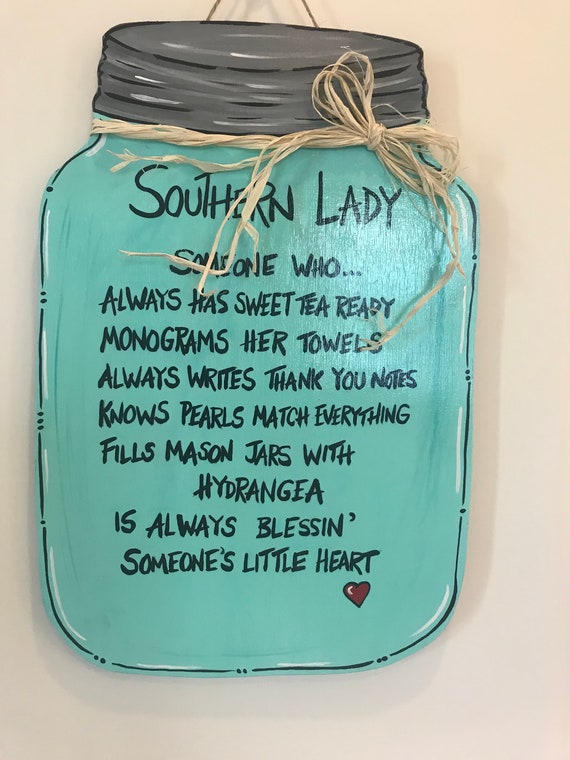 SOUTHERN LADY
SOMEONE WHO...
ALWAYS HAS SWEET TEA READY
MONOGRAMS HER TOWELS
ALWAYS WRITES THANK YOU NOTES
KNOWS PEARLS MATCH EVERYTHING
FILLS MASON JARS WITH
HYDRANGEA
IS ALWAYS BLESSIN'
SOMEONE'S LITTLE HEART